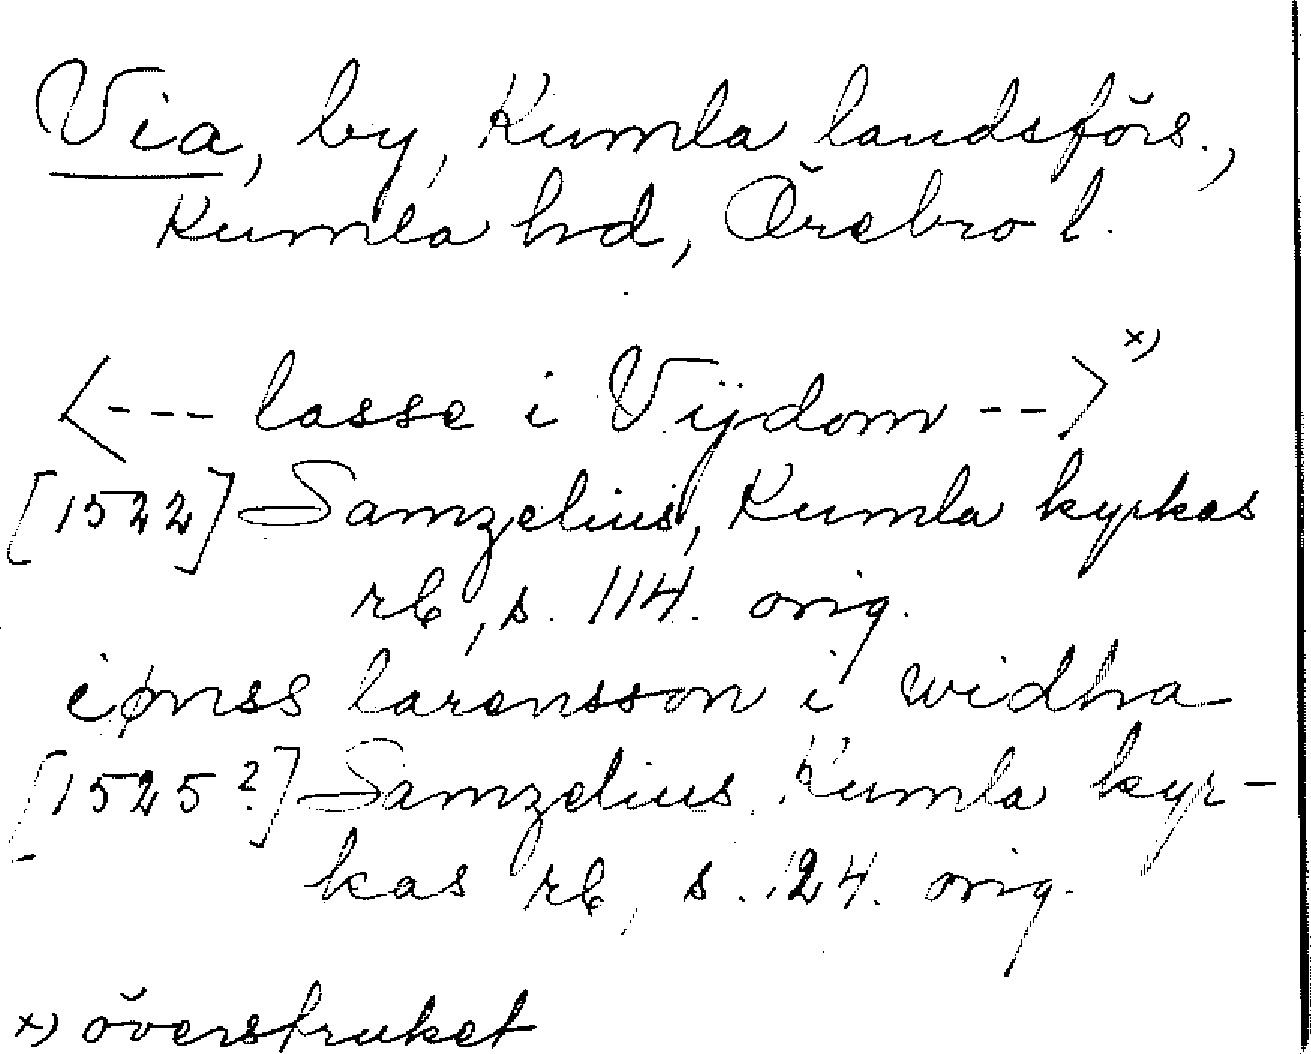 Via, by, Kumla landsförs.,
Kumla hd, Örebro l.
<--- lasse i Vijdom --> x)
[1522] Samzelius, Kumla kyrkas
rb, s. 114. orig.
iønss larensson i widha
[1525?] Samzelius, Kumla kyr-
kas rb, s. 124. orig.
x) överstruket